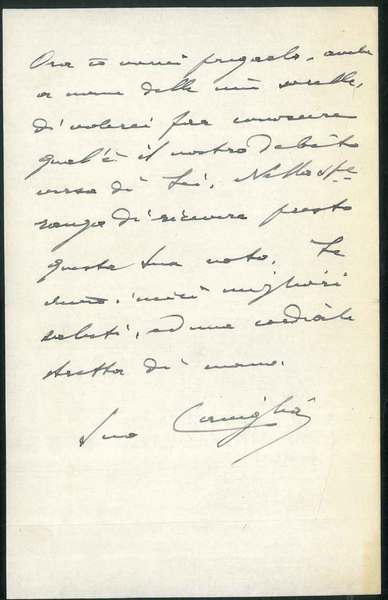 Ora io vorrei pregarlo, anche
a nome delle mie sorelle,
di volerci far conoscere
qual'è il nostro debito
verso di Lei. Nella spe
ranza di ricevere presto
questa sua nota, Le
invio i miei migliori
saluti, ed una cordiale
stretta di mano.
Suo Caniglia